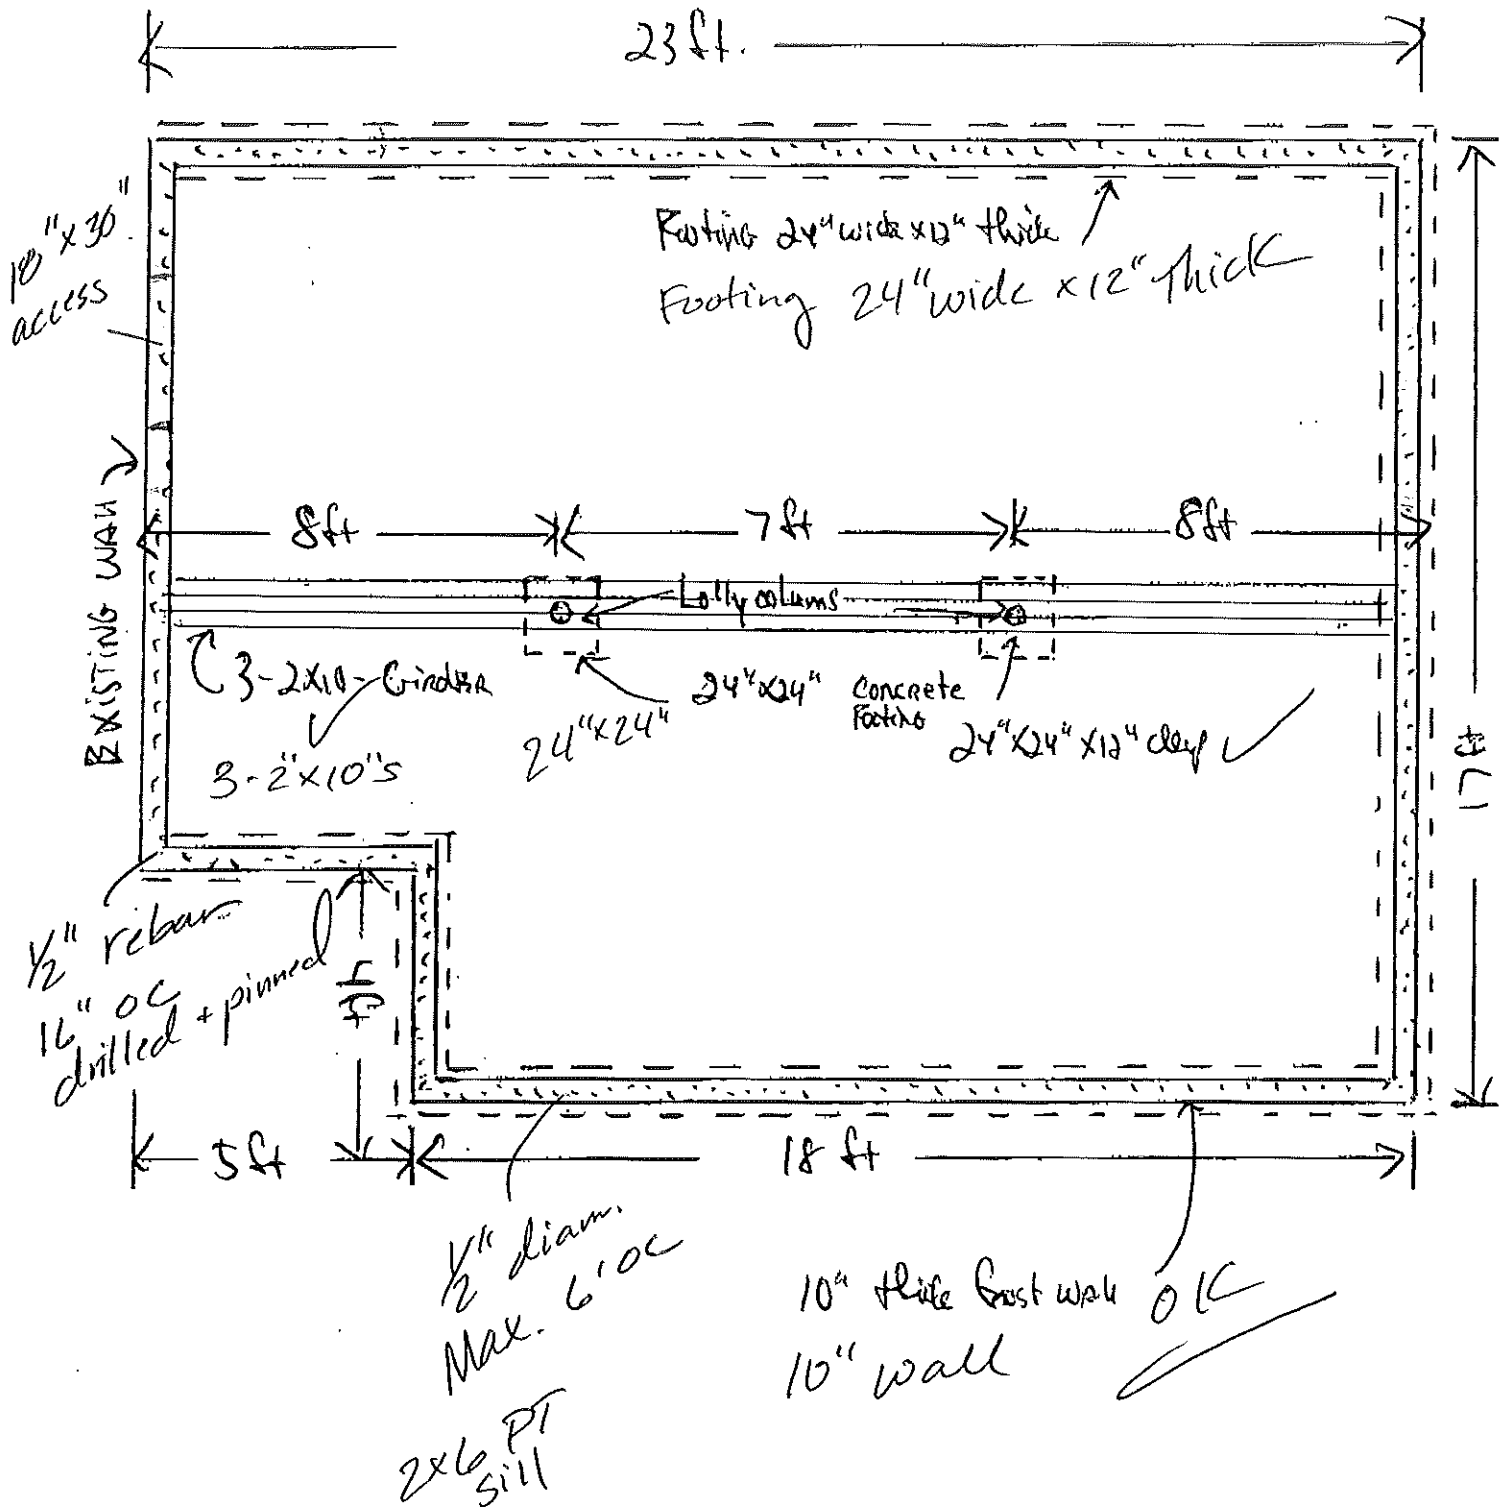 23 ft.
18"x30"
access
Footing 24" wide x 12" thick
Footing 24" wide x 12" thick
EXISTING WALL
8ft
7 ft
8ft
Lolly colums
3-2x10-Girder
3-2"x10"s
24"x24"
24"x24"
Concrete
Footing
24"x24"x12" deep
17 ft
1/2" rebar
16" OC
drilled + pinned
4ft
5 ft
18 ft
1/2" diam.
Max. 6' OC
2x6 PT
sill
10" thick frost wall OK
10" wall